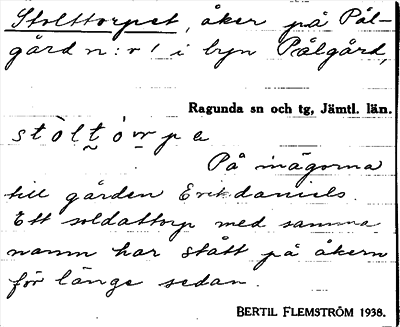 Stolttorpet, åker på Pål-
gård n:r 1 i byn Pålgård,
Ragunda sn och tg, Jämtl. län.
stòltò́rpa
På inägorna
till gården Erikdaniels.
Ett soldattorp med samma
namn har stått på åkern
för länge sedan.
BERTIL FLEMSTRÖM 1938.